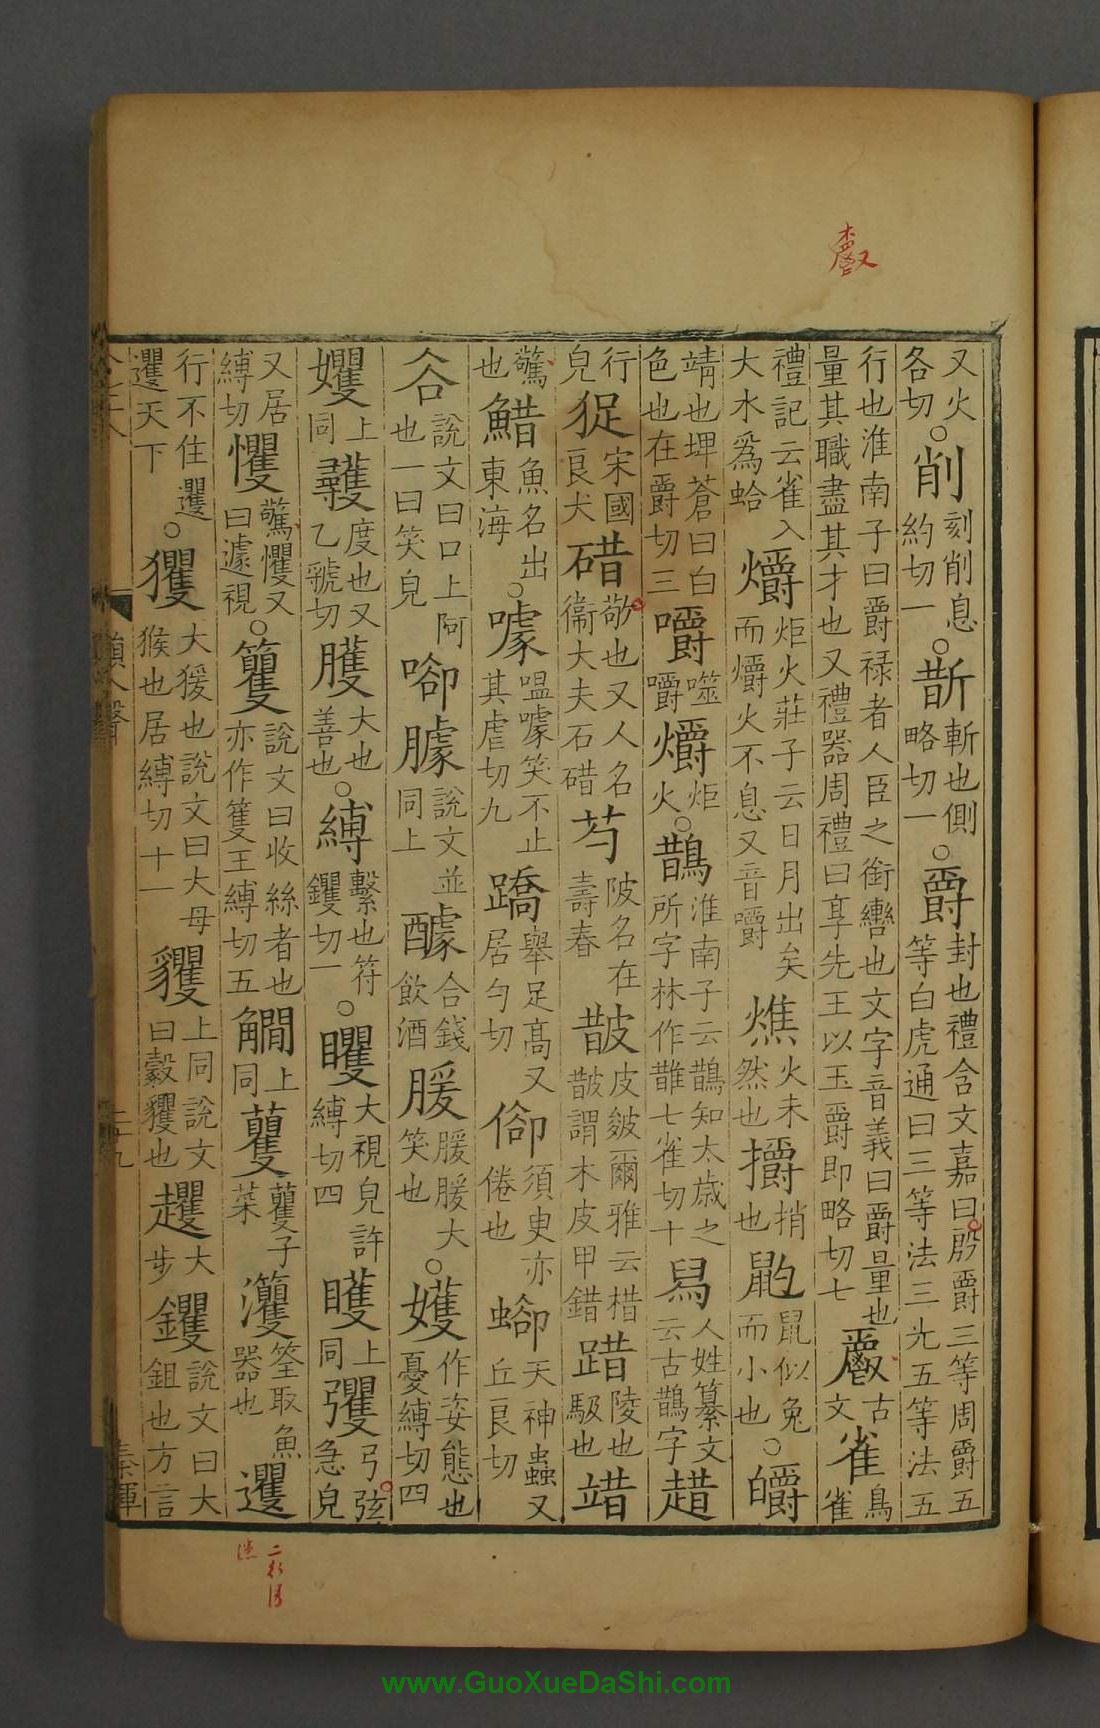 又火各切○削刻削息約切一○斮斬也側略切一○爵封也禮含文嘉曰殷爵三等周爵五等白虎通曰三等法三光五等法五
行也淮南子曰爵禄者人臣之銜轡也文字音義曰爵量也量其職盡其才也又禮器周禮曰享先王以玉爵即略切七古文雀鳥雀
禮記云雀入大水爲蛤爝炬火莊子云日月出矣而爝火不息又音嚼燋火未然也㩱捎也鼩鼠似兔而小也○皭
靖也埤蒼曰白色也在爵切三嚼噬嚼爝炬火○鵲淮南子云鵲知太歲之所字林作䧿七雀切十舄人姓纂文云古鵲字趞
行皃㹱宋國良犬碏敬也又人名衞大夫石碏芍陂名在壽春皵皮皴爾雅云棤皵謂木皮甲錯踖陵也躐也䜍
驚也䱜魚名出東海○噱嗢噱笑不止其虐切九蹻舉足高又居勺切㑢須㬰亦倦也𧍕天神蟲又丘良切
谷說文曰口上阿也一曰笑皃㖸臄說文並同上醵合錢飲酒腝腝腝大笑也○嬳作姿態也憂縛切四
㜰上同彠度也又乙虢切臒大也善也○縛繫也符钁切一○矍大視皃許縛切四矆上同彏弓弦急皃
又居縛切戄驚戄又曰遽視○籰說文曰收絲者也亦作篗王縛切五䂄上同蘉蘉子菜籆筌取魚器也躩
行不住躩躩天下○玃大猨也說文曰大母猴也居縛切十一貜上同說文曰㺉貜也趯大步钁說文曰大鉏也方言
二十九
秦暉
www.GuoXueDaShi.com